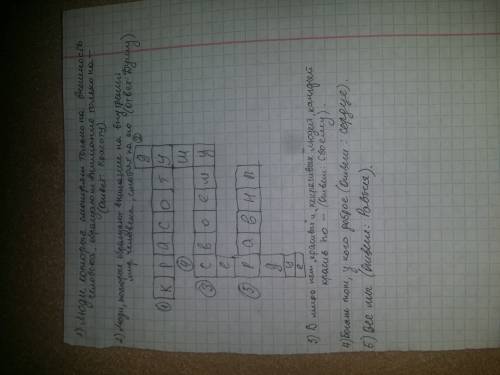 1) Люди, которые смотрят только на внешность
человека, обращают внимание только на –
(ответ: красоту).
2) Люди, которые обращают внимание на внутренний
мир человека, смотрят на его (ответ: душу)
② Д У Ш У
① К Р А С О Т У
④
③ С В О Е М У
Е
⑤ Р А В Н Ы
Д
Ц Е
3) В мире нет красивых и некрасивых людей, каждый
красив по – (ответ: своему).
4) Богат тот, у кого доброе (ответ: сердце).
5) Все мы (ответ: Равны).